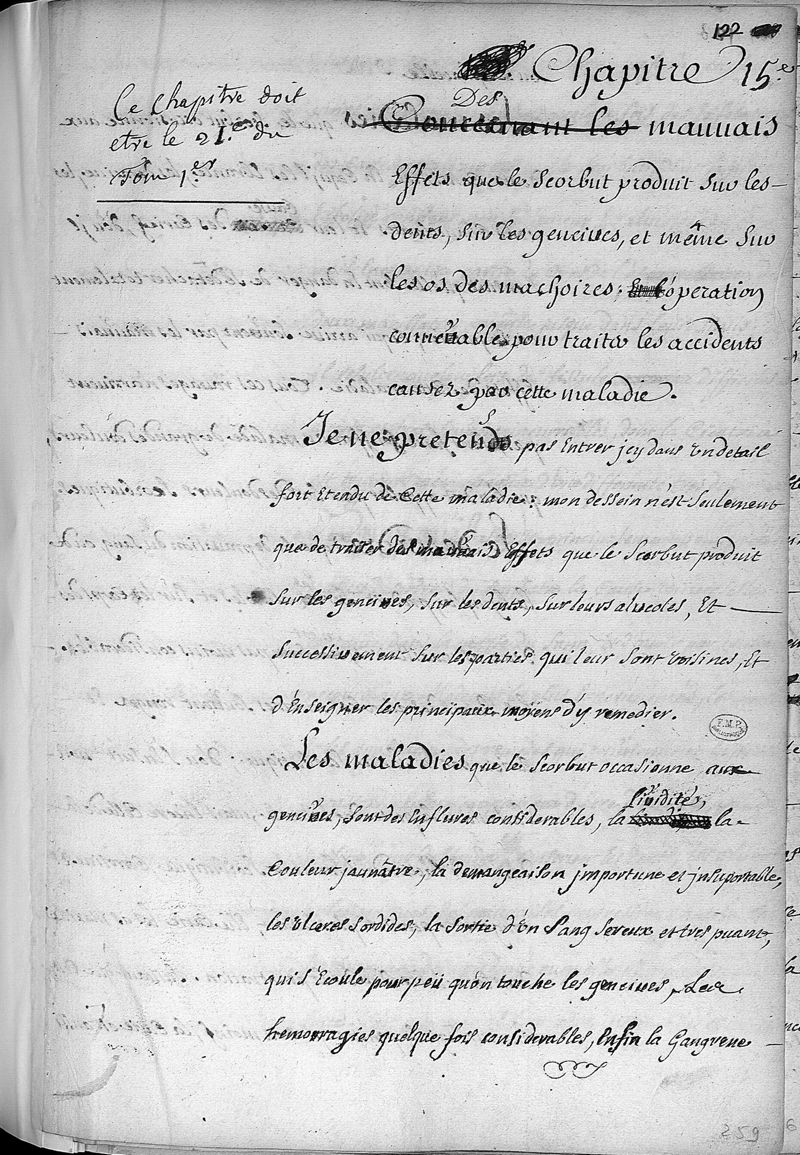 122
Chapitre 15.e
Ce chapitre doit
etre le 21.e du
Tom 1.er
Des
Concernant les mauuais
Effets que le Scorbut produit sur les
dents, sur les genciues, et même sur
les os des machoires; Et l'óperation
conuenable pour traiter les accidents
causez par cette maladie.
Je ne pretends pas Entrer jcy dans un detail
fort Etendu de Cette maladie: mon dessein n'est seulement
que de traiter des mauuais Effets que le Scorbut produit
sur les genciues, sur les dents, sur leurs alueoles, Et
successiuement sur les parties qui leur sont voisines, Et
d'Enseigner les principaux moyens d'y remedier.
F.M.P.
Les maladies que le Scorbut occasionne aux
liuidité,
genciues, sont des Enflures considerables, la la
Couleur jaunâtre, la demangeaison jmportune et jnsuportable,
les Ulceres sordides, la sortie d'Un sang sereux et tres puant,
qui s'Ecoule pour peü qu'on touche les genciues, Les
hemorragies quelque fois considerables, Enfin la Gangrene
259